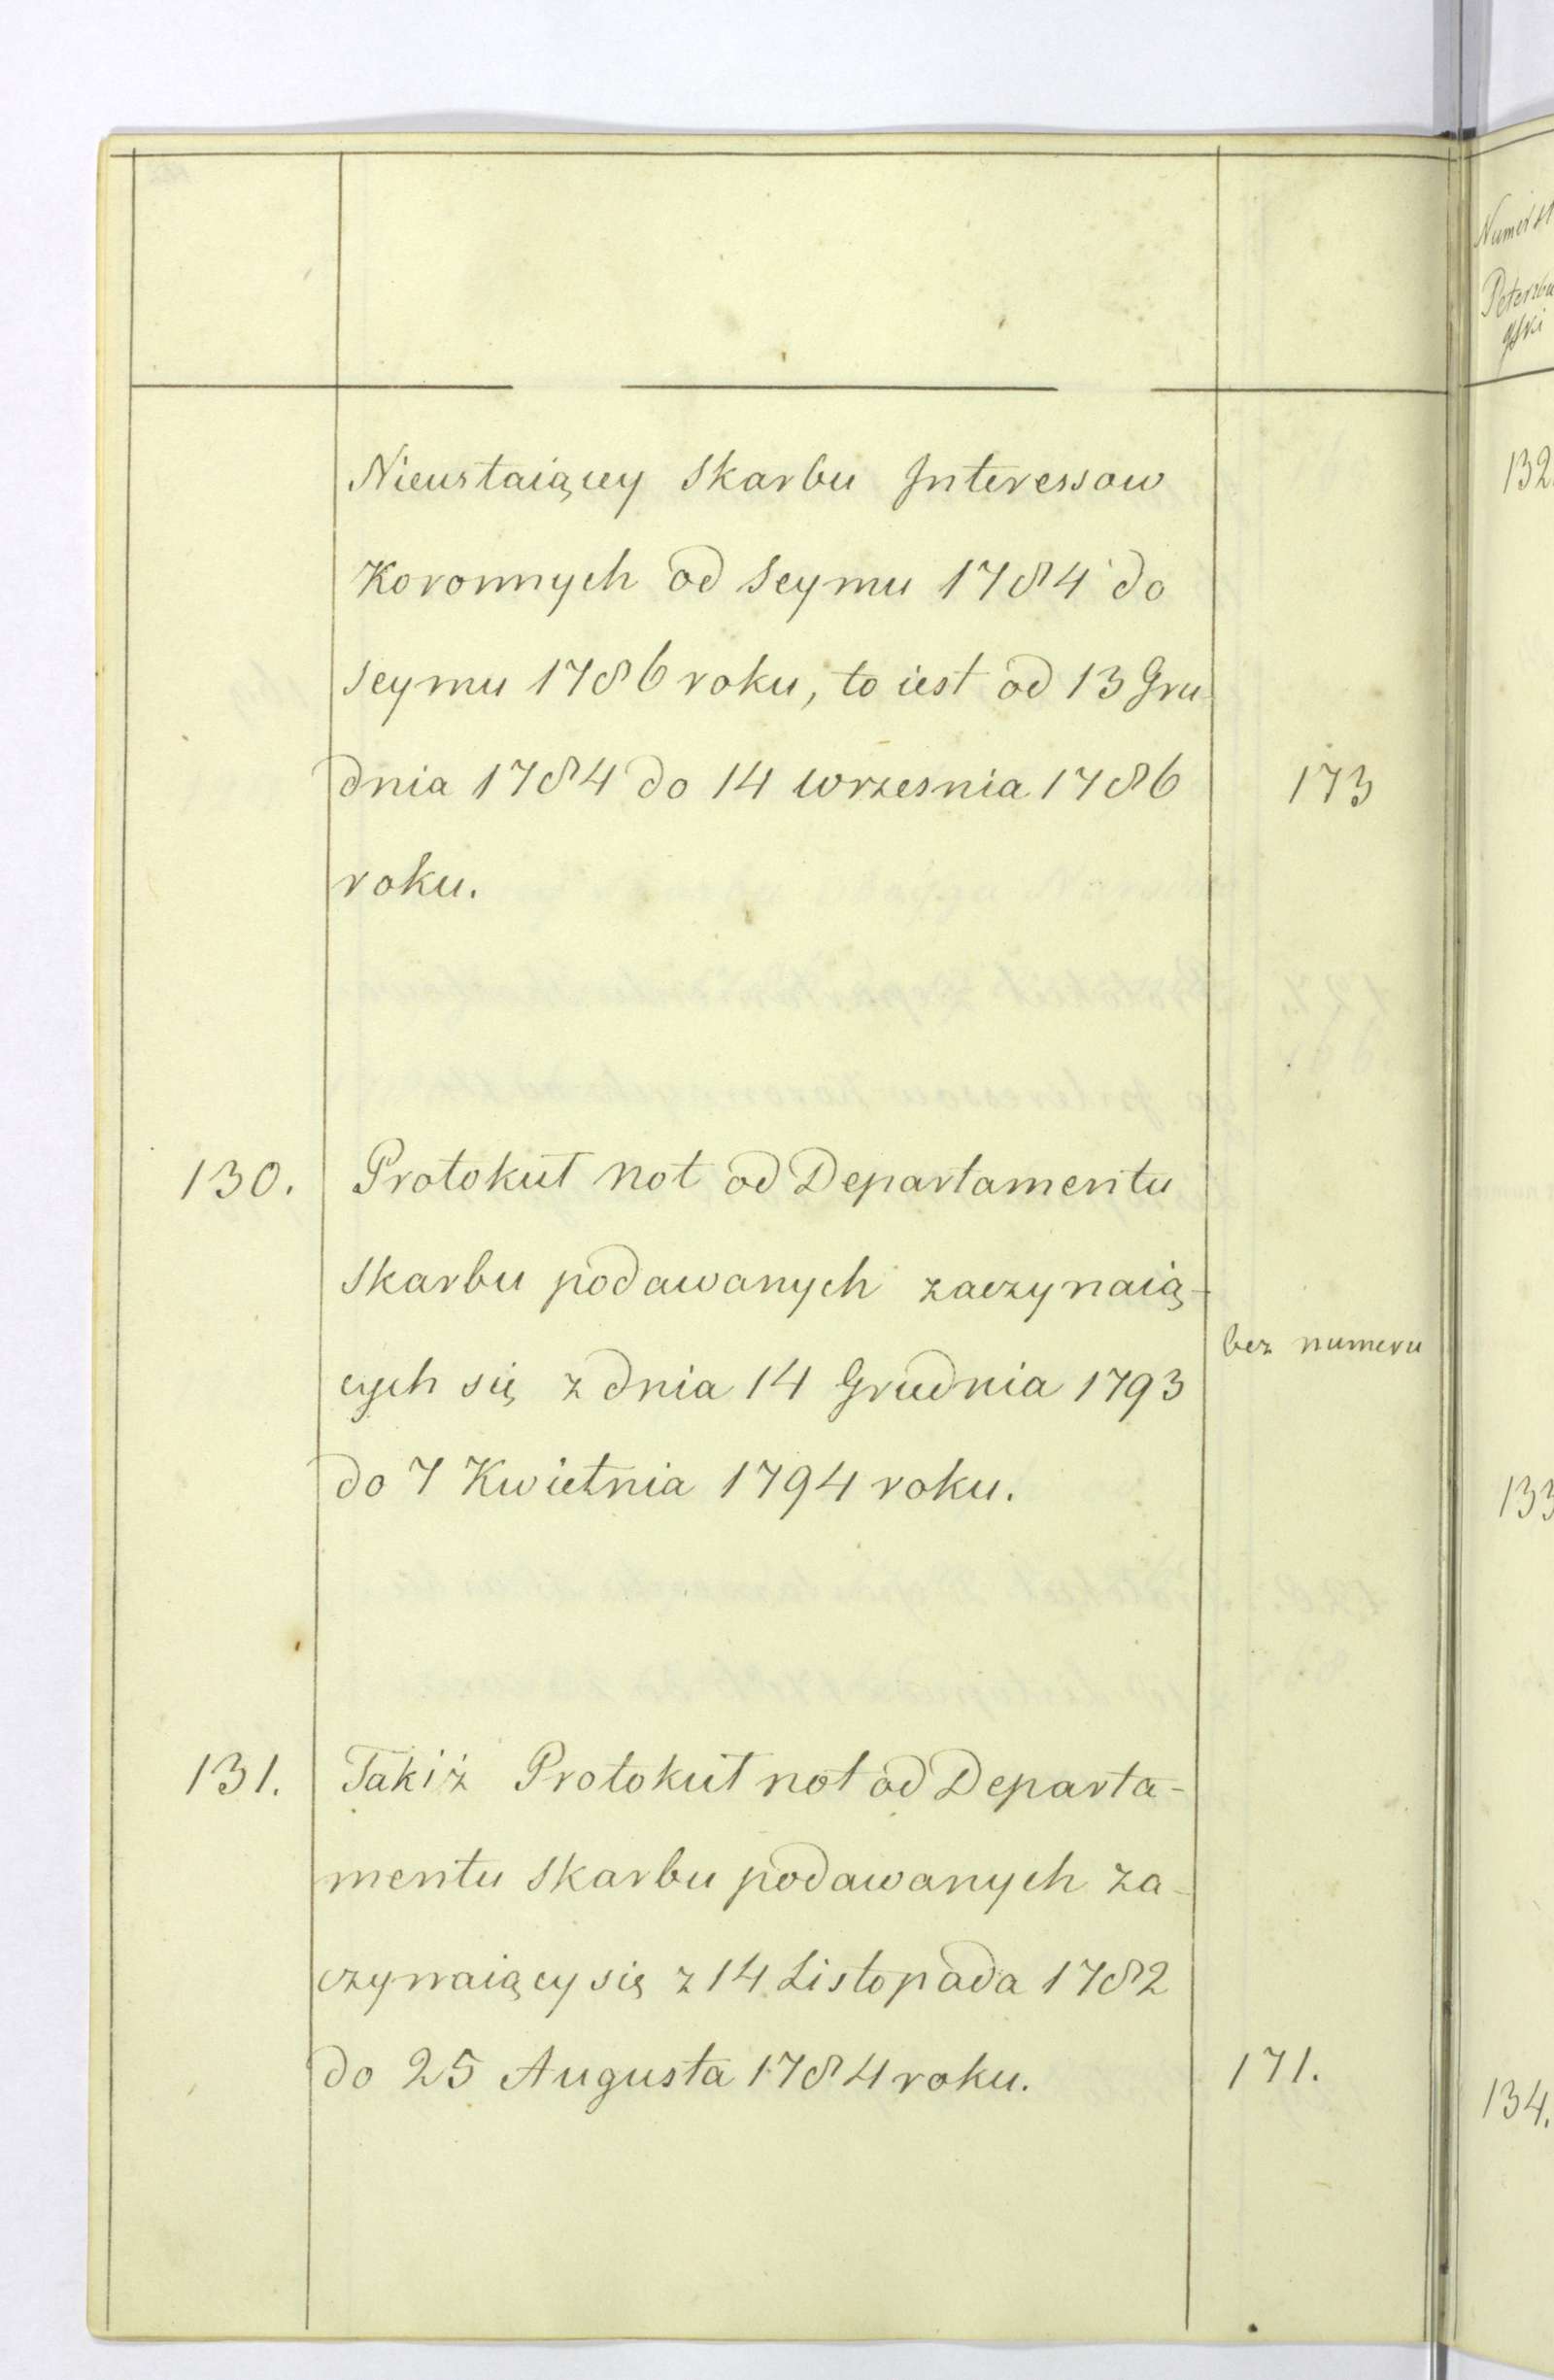 Nieustaiącey Skarbu Interessow
Koronnych od Seymu 1784 do
Seymu 1786 roku, to iest od 13 Gru-
dnia 1784 do 14 Wrzesnia 1786
173
roku.
130.
Protokuł not od Departamentu
Skarbu podawanych zaczynaią-
cych się z dnia 14 Grudnia 1793
bez numeru
do 7 Kwietnia 1794 roku.
131.
Takiż Protokuł not od Departa-
mentu Skarbu podawanych za-
czynaiący się z 14 Listopada 1782
do 25 Augusta 1784 roku.
171.
132.
133
134.